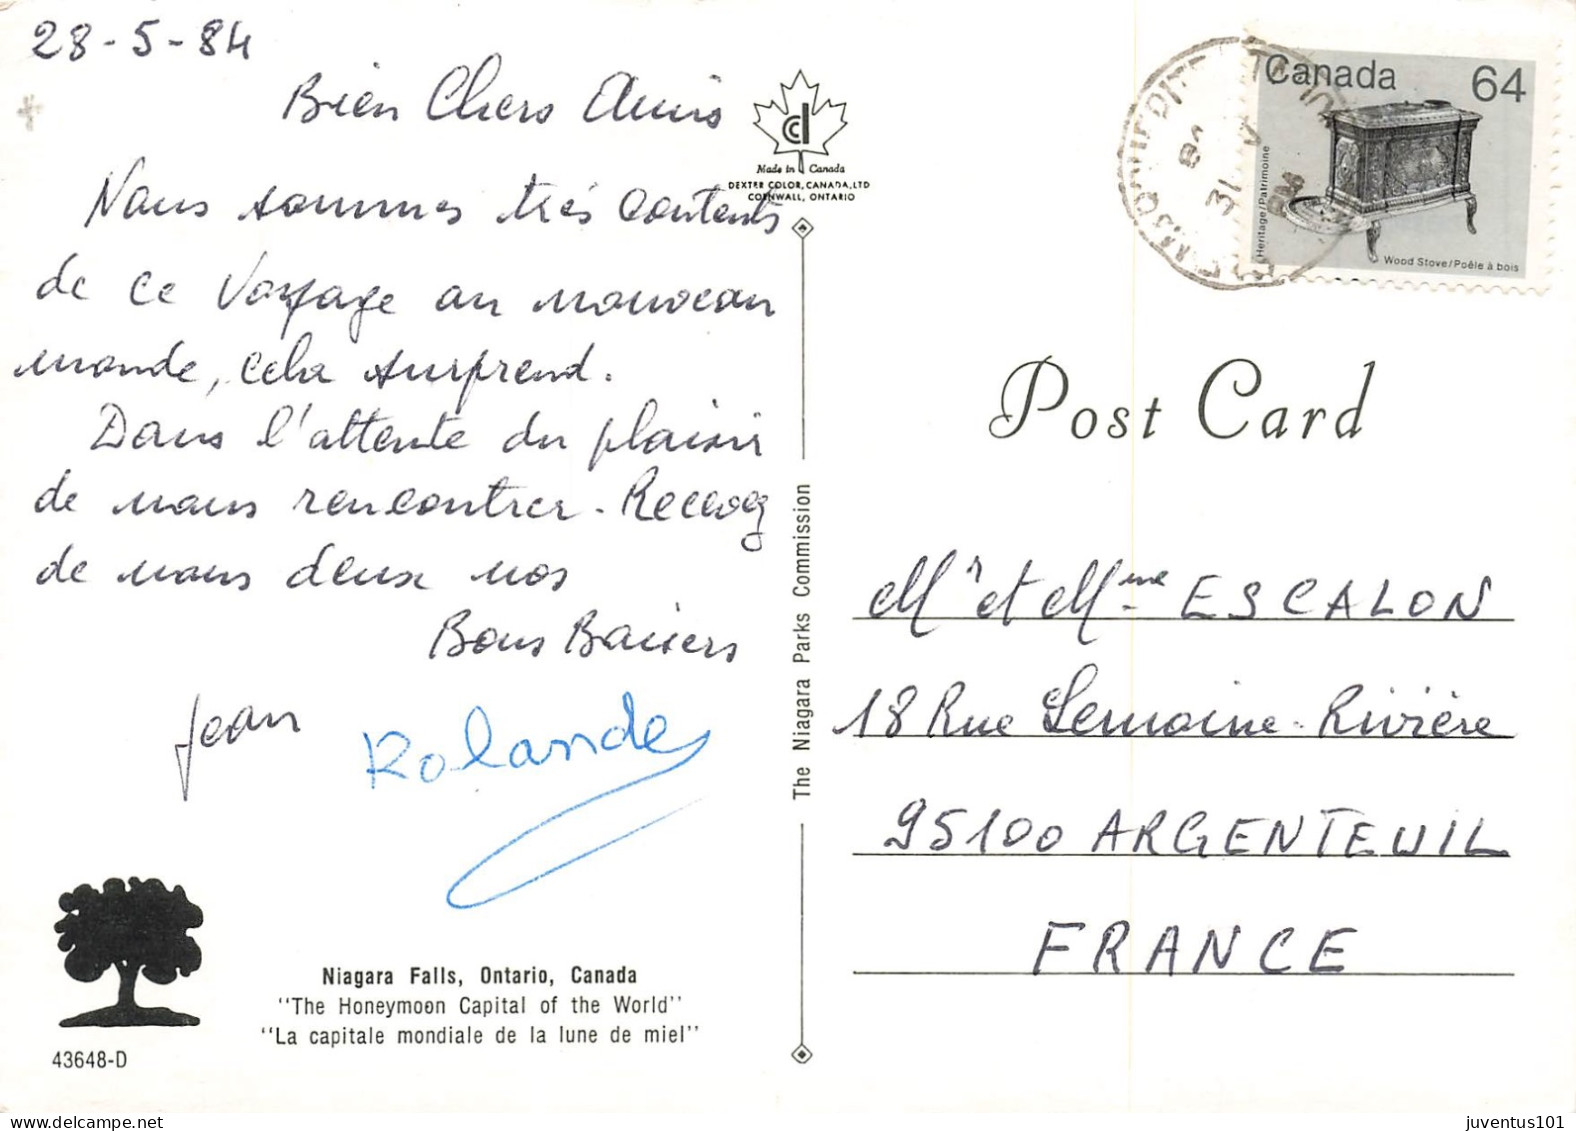 28-5-84
Bien Chers Amis
Nous sommes très contents
de ce Voyage au nouveau
monde, cela surprend.
Dans l'attente du plaisir
de vous rencontrer - Recevez
de nous deux nos
Bons Baisers
Jean
Rolande
Niagara Falls, Ontario, Canada
"The Honeymoon Capital of the World"
"La capitale mondiale de la lune de miel"
43648-D
Made in Canada
DEXTER COLOR, CANADA, LTD
CORNWALL, ONTARIO
The Niagara Parks Commission
Canada 64
Heritage/Patrimoine
Wood Stove/Poêle à bois
Post Card
Mr et Mme ESCALON
18 Rue Lemoine-Rivière
95100 ARGENTEUIL
FRANCE
juventus101